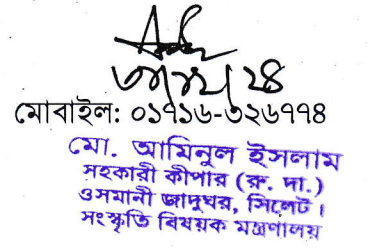 মোবাইল: ০১৭১৬-৩২৬৭৭৪
মো. আমিনুল ইসলাম
সহকারী কীপার (রু. দা.)
ওসমানী জাদুঘর, সিলেট।
সংস্কৃতি বিষয়ক মন্ত্রণালয়